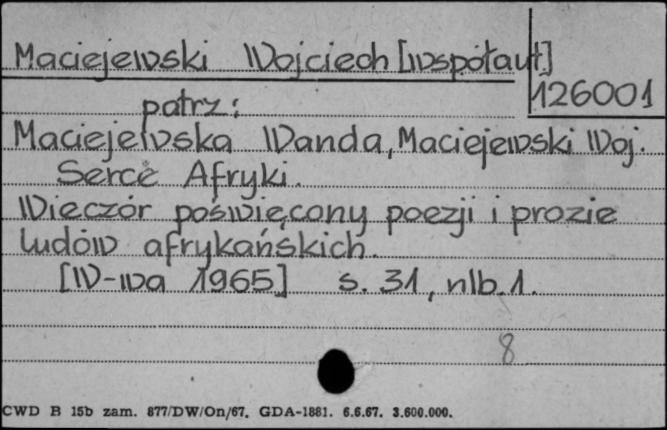 Maciejewski Wojciech [współaut]
126001
patrz:
Maciejewska Wanda, Maciejewski Woj.
Serce Afryki.
Wieczór poświęcony poezji i prozie
ludów afrykańskich.
[W-wa 1965] s. 31, nlb. 1.
8
CWD B 15b zam. 877/DW/On/67. GDA-1881. 6.6.67. 3.600.000.